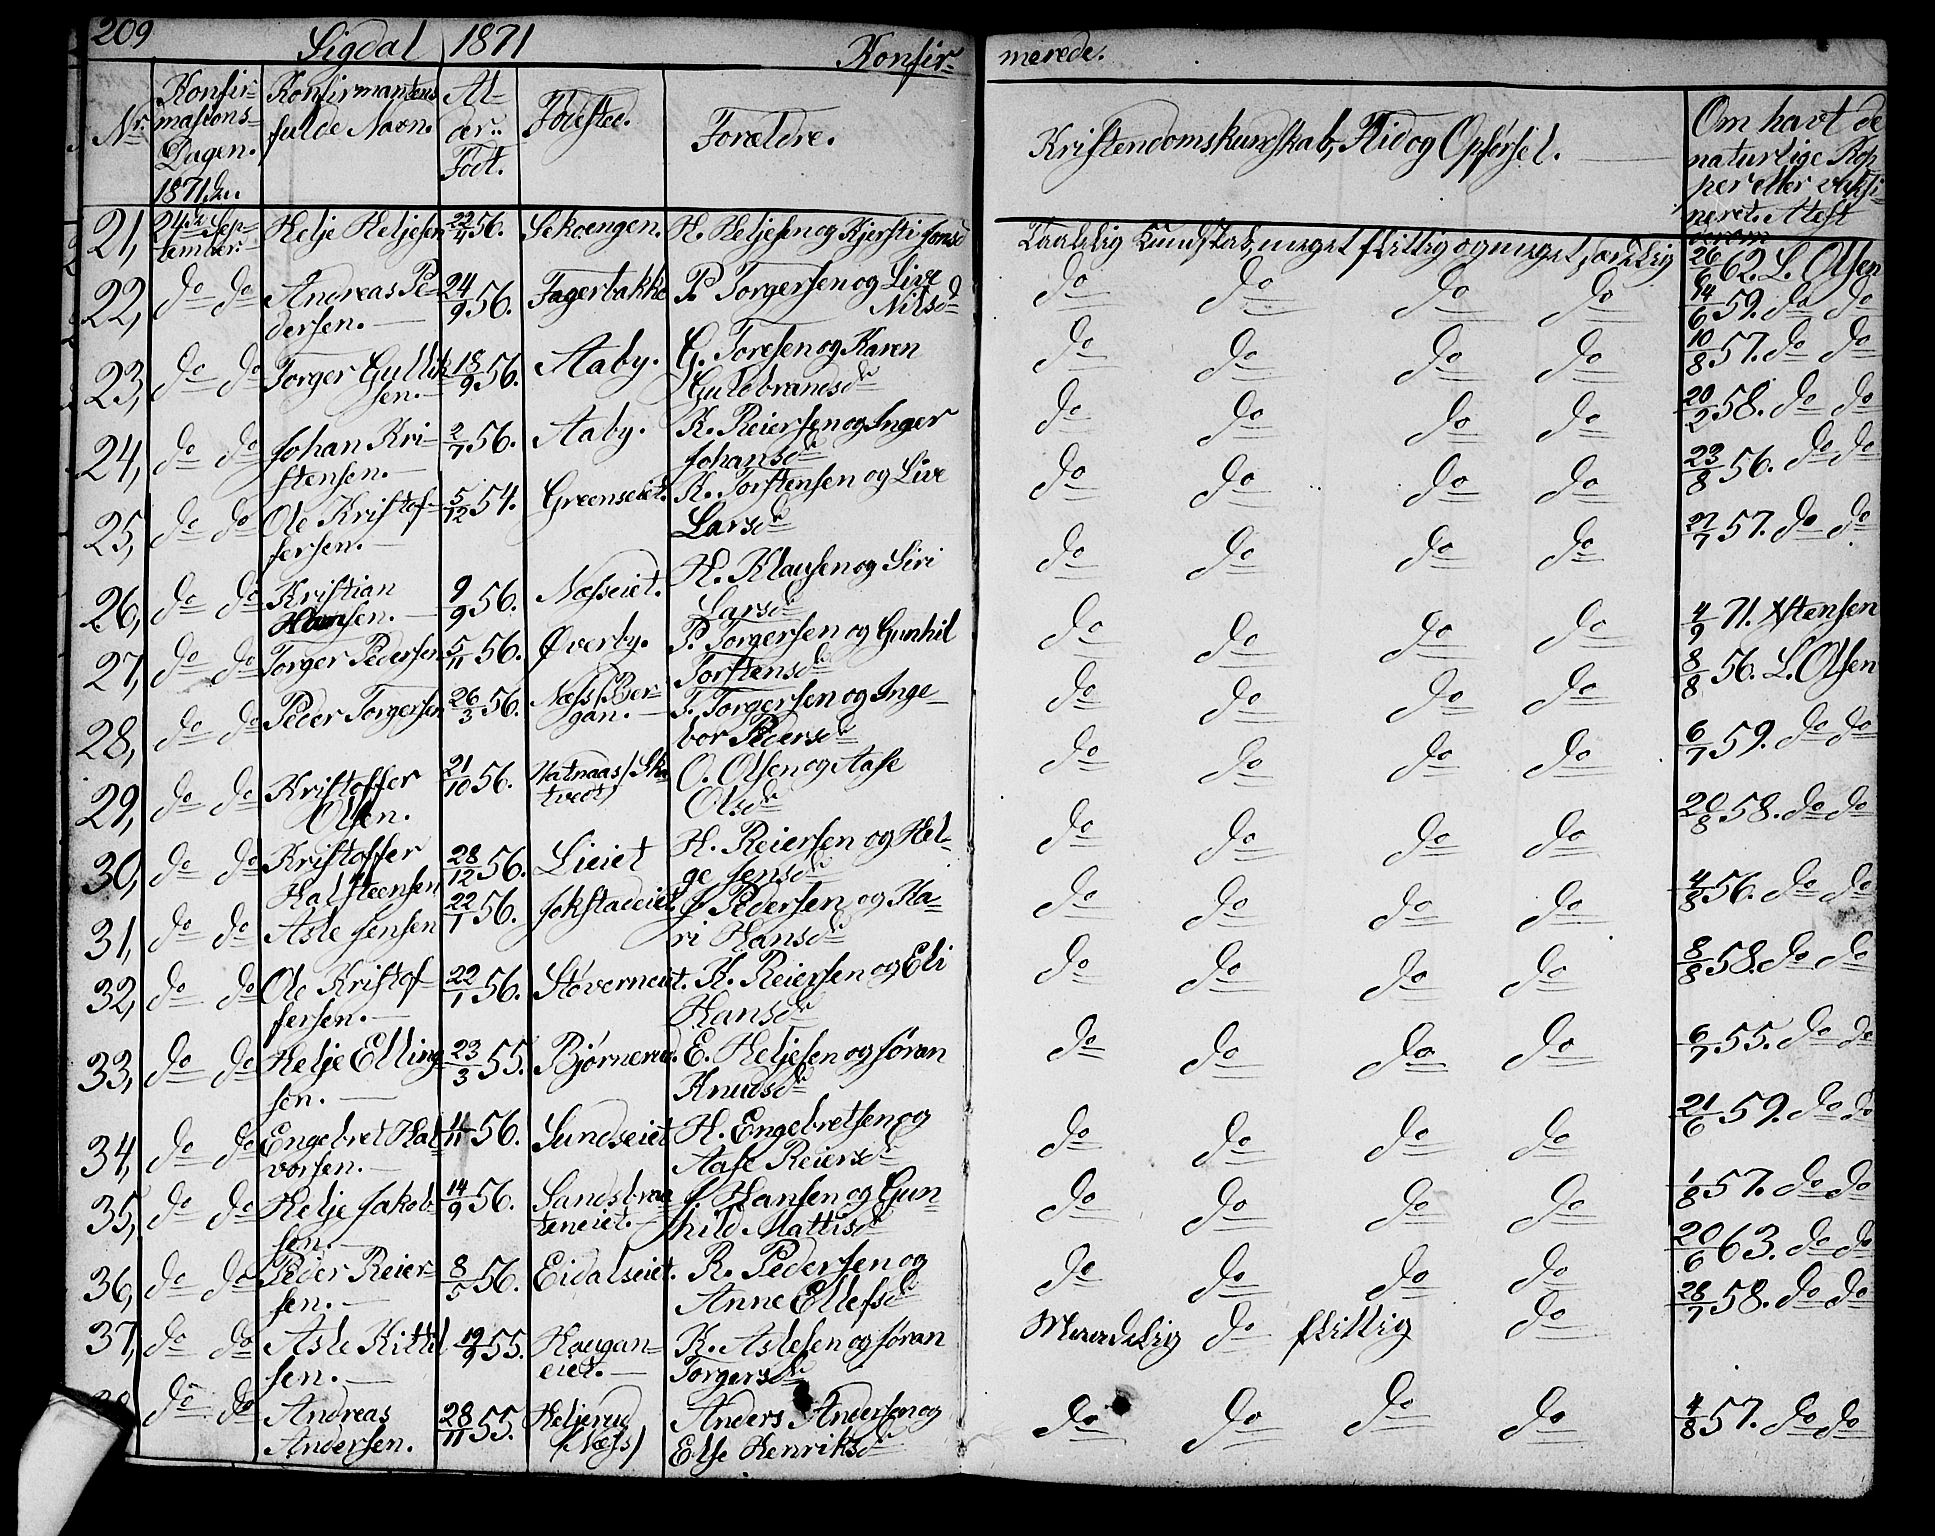 209 Sigdal 1871 Konfir- merede.
Nr. Konfirmations-Dagen. 1871 den Konfirmantens fulde Navn. Alder: Født. Fødested. Forældre. Kristendomskundskab, Flid og Opførsel. Om havt de naturlige Kopper eller vaksineret. Attest derom
21, 24de September. Helje Heljesen 22/4 56. H. Heljesen og Kjersti Taalelig Kundskab, meget flittig og meget sædelig 26/6 62. L. Olsen
22, do do Andreas Pedersen. 24/9 56. Fagerbakke P. Torgersen og Live Nilsd. do do do do 14/6 59. do do
23, do do Torger Gulliksen. 18/9 56. Aaby. G. Toresen og Karen Guldbrandsdr do do do do 10/8 57. do do
24, do do Johan Kristensen. 2/7 56. Aaby. K. Reiersen og Inger Johansdr do do do do 20/2 58. do do
25, do do Ole Kristoffersen. 5/12 54. Greenseiet. K. Torstensen og Live Larsdr do do do do 23/8 56. do do
26, do do Kristian Hansen. 9/9 56. Næsseiet. H. Klausen og Siri Larsdr do do do do 27/7 57. do do
27, do do Torger Pedersen 5/11 56. Øverby. P. Torgersen og Gunhil Torstensdr do do do do 4/9 71. Xstensen
28, do do Peder Torgersen 26/3 56. Næss/Bergan. T. Torgersen og Ingebor Pedersdr do do do do 8/8 56. L. Olsen
29, do do Kristoffer Olsen. 21/10 56. O. Olsen og Aase Olsdr do do do do 6/7 59. do do
30, do do Kristoffer Halsteensen 28/12 56. Lieiet H. Reiersen og Helge Jensdr do do do do 20/8 58. do do
31, do do Asle Jensen 22/1 56. Jokstadeiet. J. Pedersen og Kari Hansdr do do do do 4/8 56. do do
32, do do Ole Kristoffersen. 22/1 56. Støverneiet. K. Reiersen og Eli Hansdr do do do do 8/8 58. do do
33, do do Helje Ellingsen. 23/3 55. Bjørnerud. E. Heljesen og Jøran Knudsdr do do do do 6/7 55. do do
34, do do Engebret Halvorsen. 4/11 56. Sundseiet H. Engebretsen og Aase Reiersdr do do do do 21/6 59. do do
35, do do Helje Jakobsen. 14/9 56. Sandsbraateneiet. J. Hansen og Gunhild Mattisdr do do do do 1/8 57. do do
36, do do Peder Reiersen. 8/5 56. Eidalseiet. R. Pedersen og Anne Ellefsdr do do do do 20/6 63. do do
37, do do Asle Kittelsen. 19/9 55. Haugan-eiet. K. Aslesen og Jøran Torgersdr Maadelig do flittig do 28/7 58. do do
do do Andreas Andersen. 28/11 55. Heljerud (Næss) Anders Andersen og Else Henriksdr do do do do 4/8 57. do do